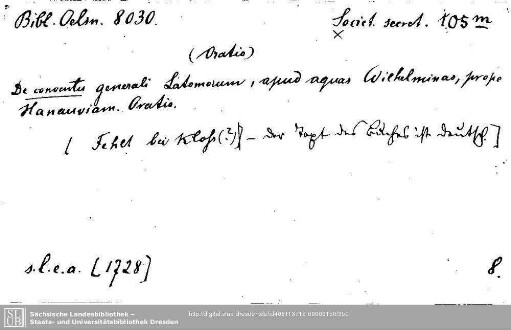 Bibl. Oelsn. 8030.
Societ. secret. 105 m
×
(Oratio)
De conventu generali Latomorum, apud aquas Wilhelminas, prope
Hanauviam. Oratio.
[ Fehlt bei Kloß (?)] – der Text des Buches ist deutsch.]
s.l.e.a. [1728]
8.
Sächsische Landesbibliothek –
Staats- und Universitätsbibliothek Dresden